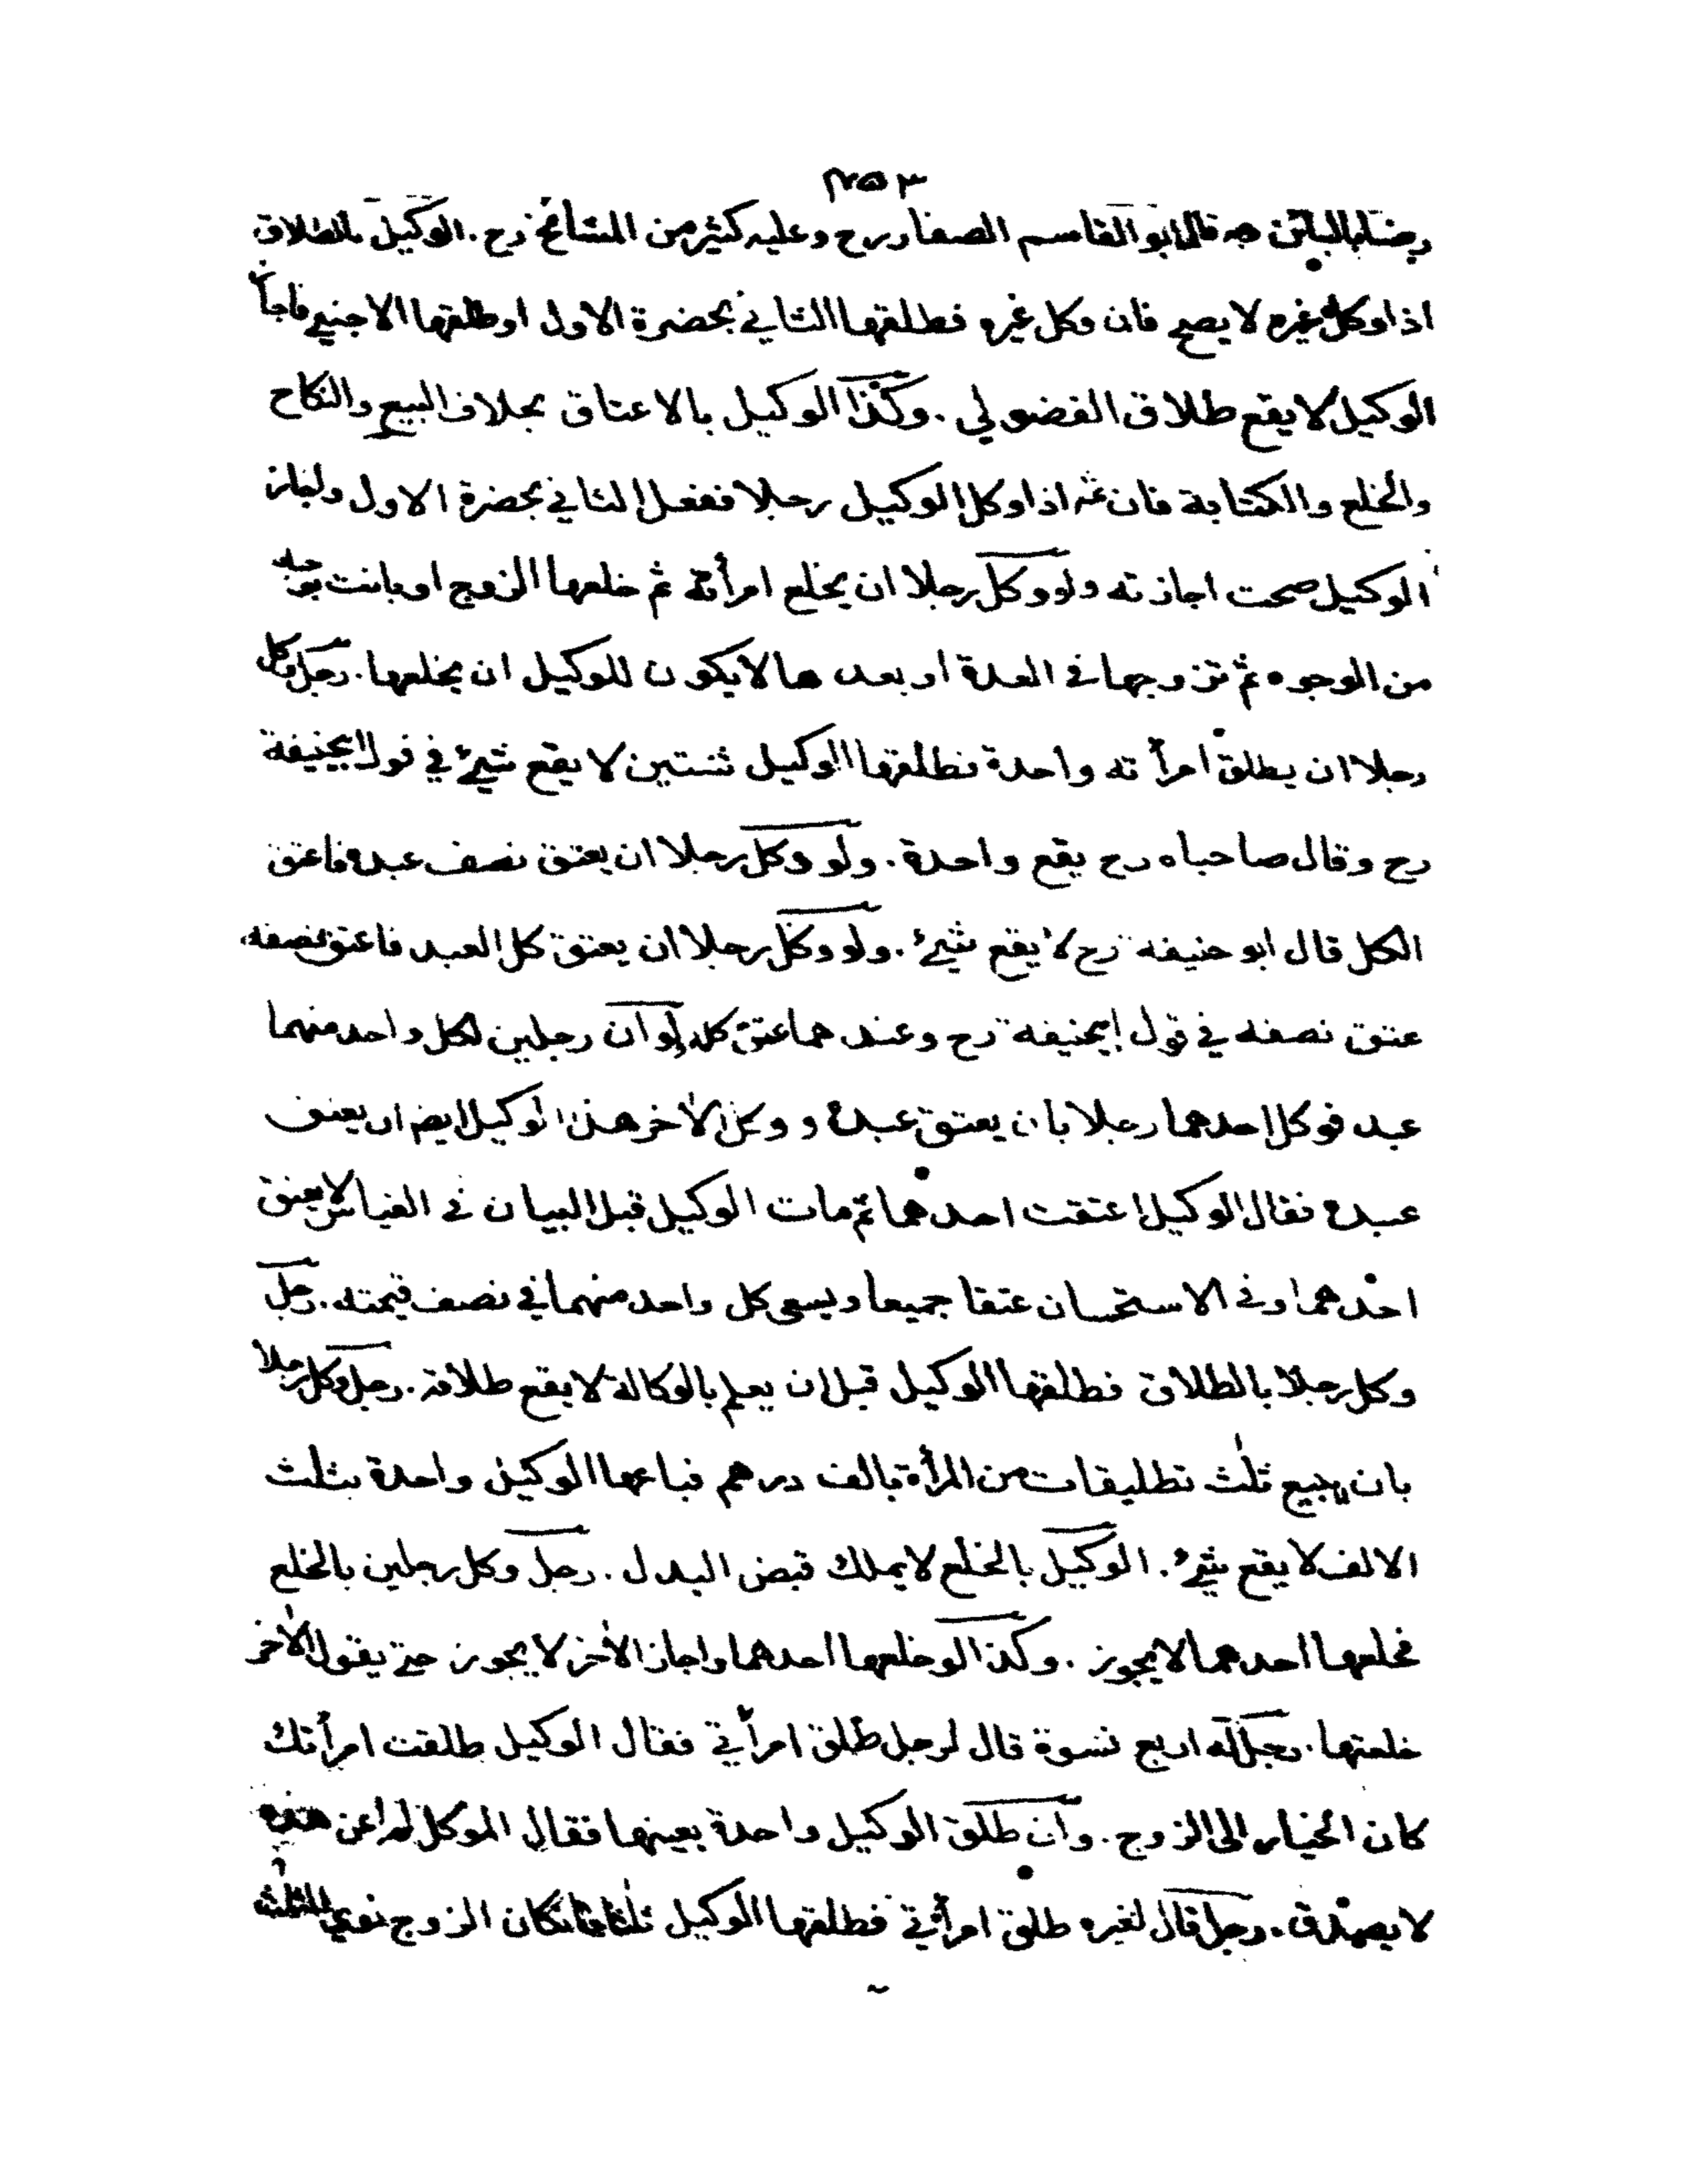 رضا بالبائن به قال ابو القاسم الصفار رح وعليه كثير من المشائخ رح . الوكيل بالطلاق
اذا وكل غيره لا يصح فان وكل غيره فطلقها الثاني بحضرة الاول او طلقها الاجنبي فاجاز
الوكيل لا يقع طلاق الفضولي . وكذا الوكيل بالاعتاق بخلاف البيع والنكاح
والخلع والكتابة فان ثمه اذا وكل الوكيل رجلا ففعل الثاني بحضرة الاول واجاز
الوكيل صحت اجازته ولو وكل رجلا ان يخلع امرأته ثم خلعها الزوج او بانت بوجه
من الوجوه ثم تزوجها في العدة او بعدها لا يكون للوكيل ان يخلعها . رجل وكل
رجلا ان يطلق امرأته واحدة فطلقها الوكيل ثنتين لا يقع شيئ في قول ابيحنيفة
رح وقال صاحباه رح يقع واحدة . ولو وكل رجلا ان يعتق نصف عبده فاعتق
الكل قال ابو حنيفة رح لا يقع شيئ . ولو وكل رجلا ان يعتق كل العبد فاعتق نصفه
عتق نصفه في قول ابيحنيفة رح وعندهما عتق كله ولو ان رجلين لكل واحد منهما
عبد فوكل احدهما رجلا بان يعتق عبده و وكل الاخر هذا الوكيل ايضا ان يعتق
عبده فقال الوكيل اعتقت احدهما ثم مات الوكيل قبل البيان في القياس لا يعتق
احدهما وفي الاستحسان عتقا جميعا ويسعى كل واحد منهما في نصف قيمته . رجل
وكل رجلا بالطلاق فطلقها الوكيل قبل ان يعلم بالوكالة لا يقع طلاقه . رجل وكل رجلا
بان يبيع ثلث تطليقات من المرأة بالف درهم فباعها الوكيل واحدة بثلث
الالف لا يقع شيئ . الوكيل بالخلع لا يملك قبض البدل . رجل وكل رجلين بالخلع
فخلعها احدهما لا يجوز . وكذا لو خلعها احدهما واجاز الاخر لا يجوز حتى يقول الاخر
خلعتها . رجل له اربع نسوة قال لرجل طلق امرأتي فقال الوكيل طلقت امرأتك
كان الخيار الى الزوج . وان طلق الوكيل واحدة بعينها فقال الموكل لم اعن هذه
لا يصدق . رجل قال لغيره طلق امرأتي فطلقها الوكيل ثلثا فان كان الزوج نوى الثلث